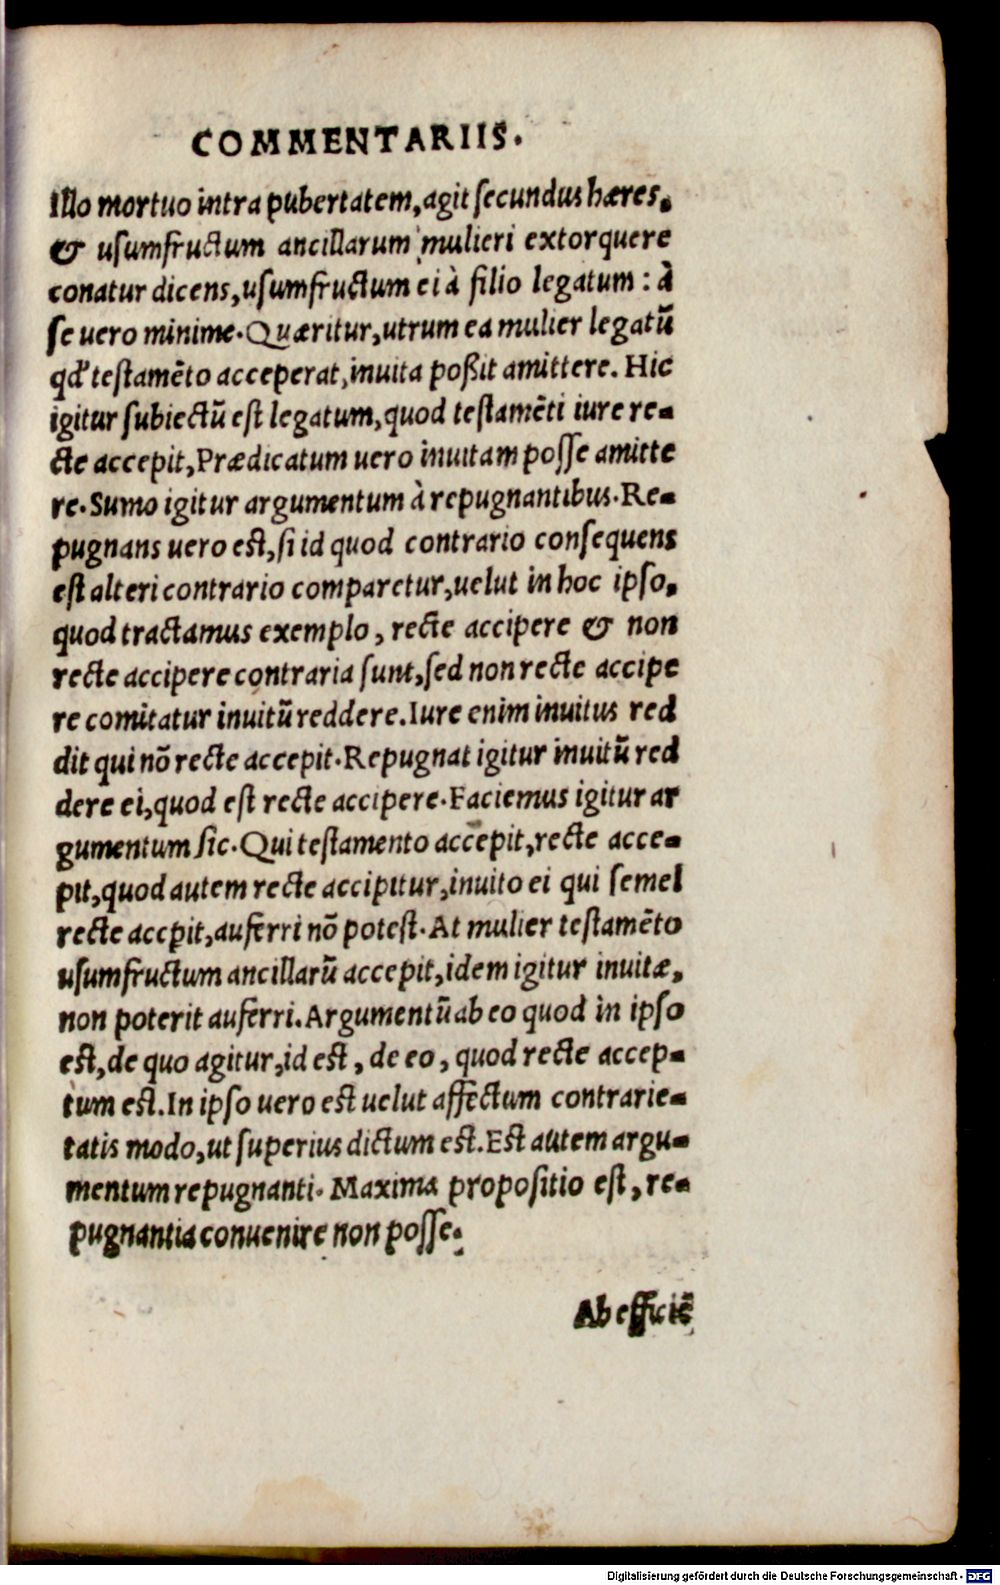 COMMENTARIIS.
Illo mortuo intra pubertatem, agit secundus hæres,
& usumfructum ancillarum mulieri extorquere
conatur dicens, usumfructum ei à filio legatum : à
se uero minime. Quæritur, utrum ea mulier legatũ
qđ testamẽto acceperat, inuita poßit amittere. Hic
igitur subiectũ est legatum, quod testamẽti iure re-
cte accepit, Prædicatum uero inuitam posse amitte
re. Sumo igitur argumentum à repugnantibus. Re-
pugnans uero est, si id quod contrario consequens
est alteri contrario comparetur, uelut in hoc ipso,
quod tractamus exemplo, recte accipere & non
recte accipere contraria sunt, sed non recte accipe
re comitatur inuitũ reddere. Iure enim inuitus red
dit qui nõ recte accepit. Repugnat igitur inuitũ red
dere ei, quod est recte accipere. Faciemus igitur ar
gumentum sic. Qui testamento accepit, recte acce-
pit, quod autem recte accipitur, inuito ei qui semel
recte accpit, auferri nõ potest. At mulier testamẽto
usumfructum ancillarũ accepit, idem igitur inuitæ,
non poterit auferri. Argumentũ ab eo quod in ipso
est, de quo agitur, id est, de eo, quod recte accep-
tum est. In ipso uero est uelut affectum contrarie-
tatis modo, ut superius dictum est. Est autem argu-
mentum repugnanti. Maxima propositio est, re-
pugnantia conuenire non posse.
Ab efficiẽ
Digitalisierung gefördert durch die Deutsche Forschungsgemeinschaft - DFG